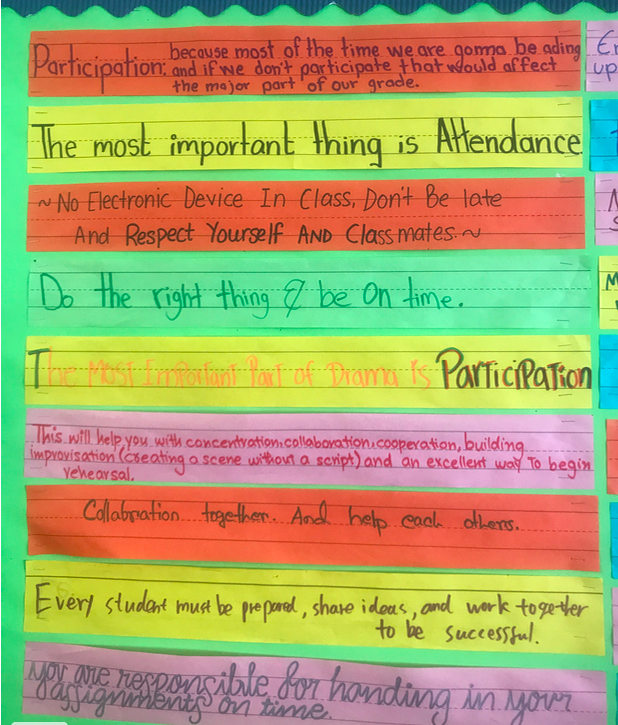 Participation: because most of the time we are gonna be ading
and if we don't participate that would affect
the major part of our grade.
The most important thing is Attendance
~ No Electronic Device In Class, Don't Be late
And Respect Yourself AND Classmates. ~
Do the right thing & be On time.
The Most Important Part of Drama is Participation
This will help you with concentration, collaboration, cooperation, building
improvisation (creating a scene without a script) and an excellent way To begin
rehearsal.
Collabration together. And help each others.
Every student must be prepared, share ideas, and work together
to be successful.
you are responsible for handing in your
assignments on time.
up